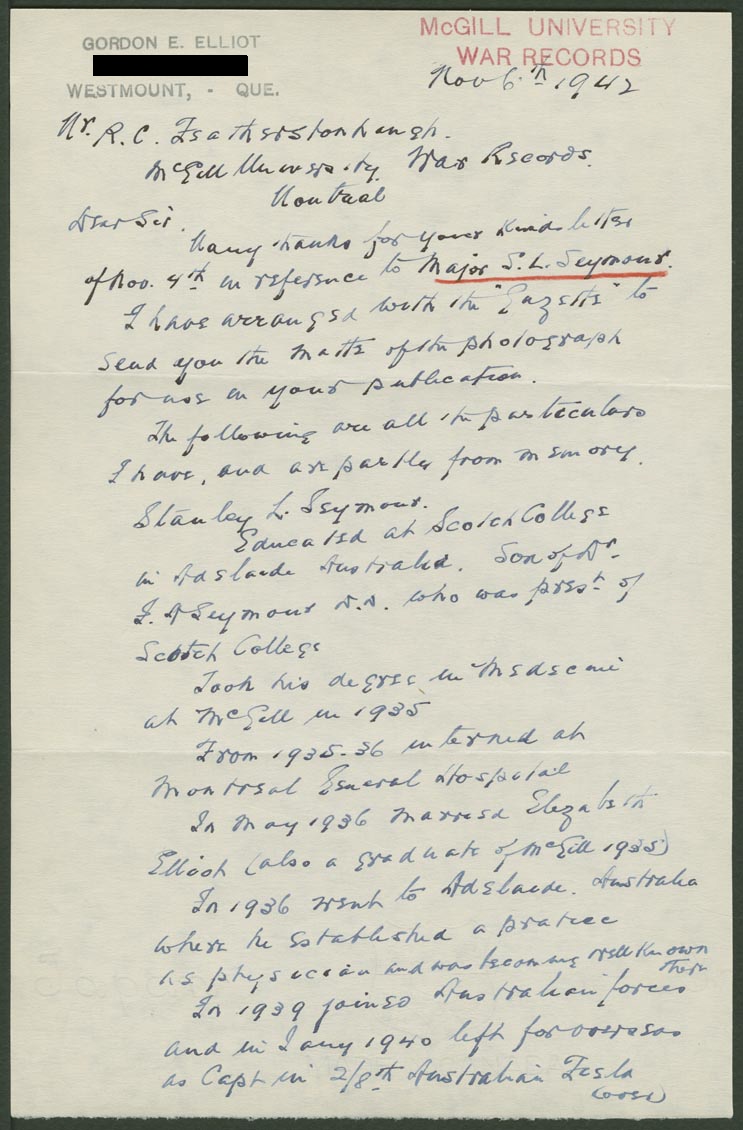 GORDON E. ELLIOT
WESTMOUNT, - QUE.
McGILL UNIVERSITY
WAR RECORDS
Nov 6th 1942
Mr. R. C. Featherstonhaugh.
McGill University War Records.
Montreal
Dear Sir.
Many thanks for your kind letter
of Nov. 4th in reference to Major S. L. Seymour.
I have arranged with the "Gazette" to
send you the matte of the photograph
for use in your publication.
The following are all the particulars
I have, and are partly from memory.
Stanley L. Seymour.
Educated at Scotch College
in Adelaide Australia. Son of Dr.
J. A Seymour D.D. who was prest. of
Scotch College
Took his degree in Medecine
at McGill in 1935
From 1935-36 interned at
Montreal General Hospital
In May 1936 married Elizabeth
Elliot (also a graduate of McGill 1935)
In 1936 went to Adelaide. Australia
where he established a pratice
as physician and was becoming well known
there
In 1939 joined Australian forces
and in Jany 1940 left for overseas
as Capt in 2/8th Australian Field
(over)